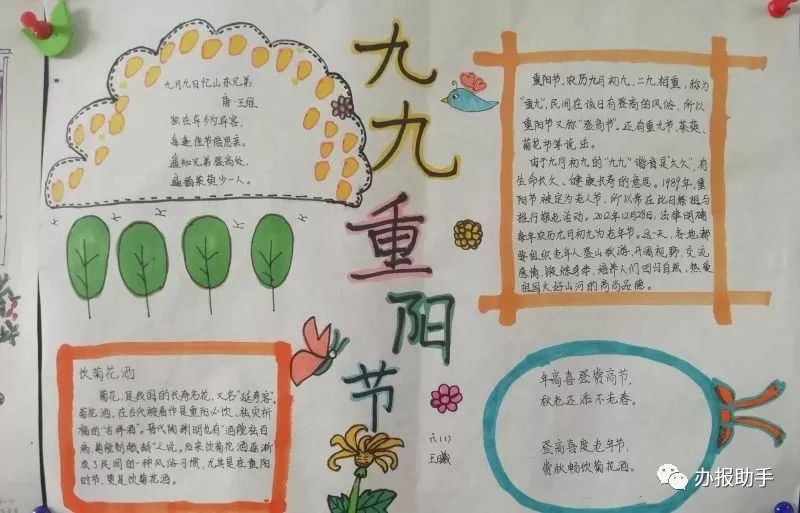 九九重阳节
九月九日忆山东兄弟
唐·王维
独在异乡为异客，
每逢佳节倍思亲。
遥知兄弟登高处，
遍插茱萸少一人。
重阳节，农历九月初九，二九相重，称为
"重九"，民间在该日有登高的风俗，所以
重阳节又称"登高节"。还有重九节、茱萸、
菊花节等说法。
由于九月初九的"九九"谐音是"久久"，有
生命长久、健康长寿的意思。1989年，重
阳节被定为老人节，所以常在此日祭祖与
推行敬老活动。2012年12月28日，法律明确
每年农历九月初九为老年节。这一天，各地都
要组织老年人登山秋游，开阔视野，交流
感情，锻炼身体，培养人们回归自然，热爱
祖国大好山河的高尚品德。
饮菊花酒
菊花，是我国的长寿名花，又名"延寿客"。
菊花酒，在古代被看作是重阳必饮、祛灾祈
福的"吉祥酒"。晋代陶渊明也有"酒能祛百
病，菊能制颓龄"之说。后来饮菊花酒逐渐
成了民间的一种风俗习惯，尤其是在重阳
时节，更是饮菊花酒。
年高喜登赏高节，
秋老还添不老春。
登高喜度老年节，
赏秋畅饮菊花酒。
六(1)
王曦
办报助手